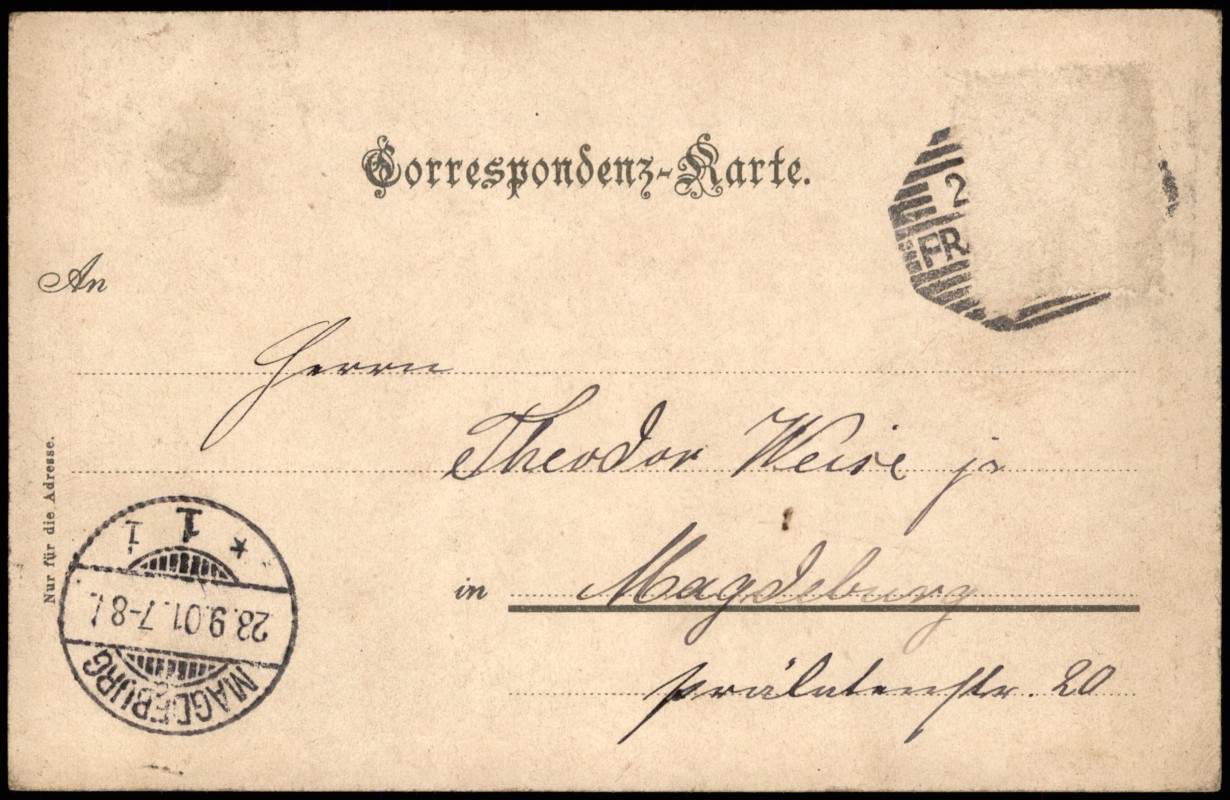 Correspondenz-Karte.
2
FR
An
Herrn
Theodor Weise jr
in Magdeburg
Prälatenstr. 20
Nur für die Adresse.
MAGDEBURG
23.9.01.7-8
1
* 1